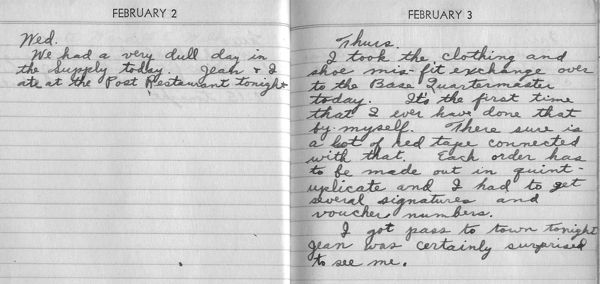 FEBRUARY 2
Wed.
We had a very dull day in
the Supply today. Jean & I
ate at the Post Restaurant tonight
FEBRUARY 3
Thurs.
I took the clothing and
shoe mis-fit exchange over
to the Base Quartermaster
today. It's the first time
that I ever have done that
by myself. There sure is
a lot of red tape connected
with that. Each order has
to be made out in quint-
uplicate and I had to get
several signatures and
voucher numbers.
I got pass to town tonight
Jean was certainly surprised
to see me.